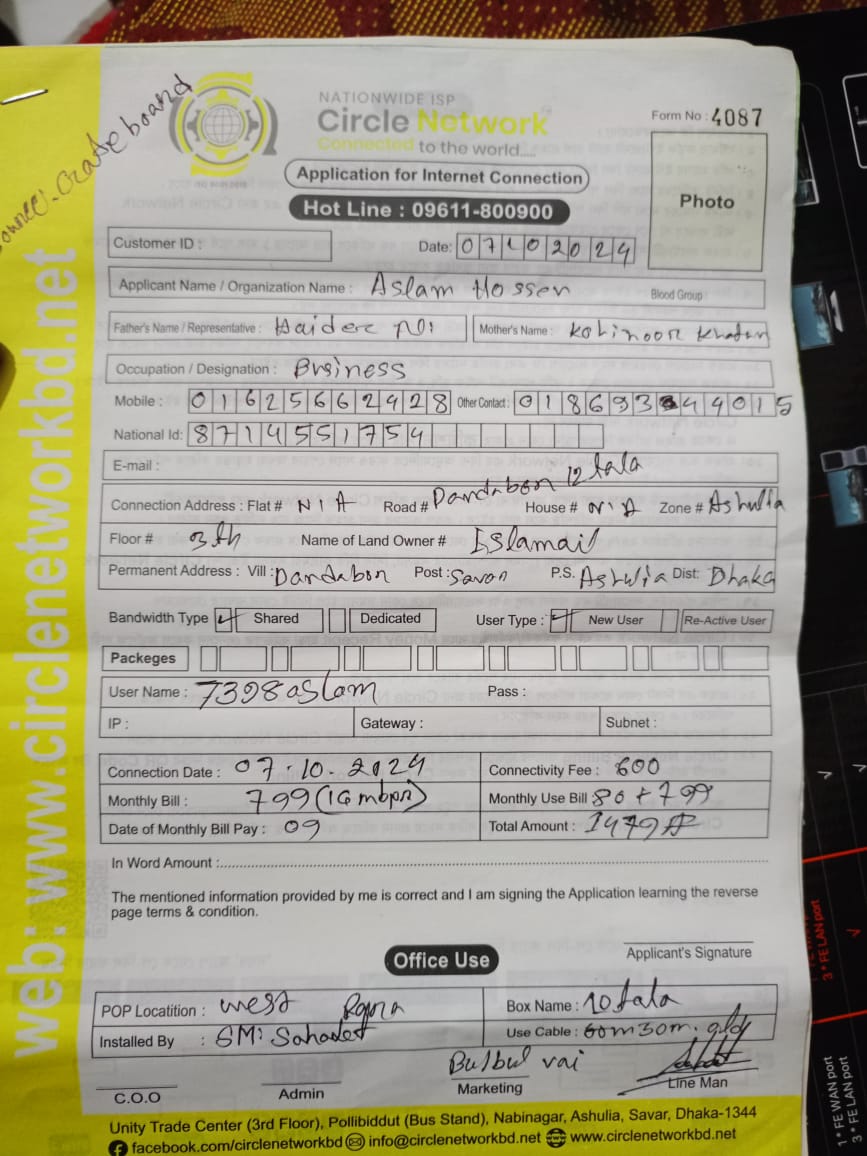 NATIONWIDE ISP
Circle Network
Connected to the world.....
Form No : 4087
Application for Internet Connection
Photo
Hot Line : 09611-800900
Customer ID :
Date: 07102024
Applicant Name / Organization Name : Aslam Hossen Blood Group :
Father's Name / Representative : Haider Mother's Name : Kohinoor Khatun
Occupation / Designation : Business
Mobile : 01625662928 Other Contact : 01869344015
National Id: 8714551754
E-mail :
Connection Address : Flat # N I A Road # Dandabon 12 tala House # N I A Zone # Ashulia
Floor # 3th Name of Land Owner # Islamail
Permanent Address : Vill : Dandabon Post : Savar P.S. Ashulia Dist: Dhaka
Bandwidth Type Shared Dedicated User Type : New User Re-Active User
Packeges
User Name : 7398aslam Pass :
IP : Gateway : Subnet :
Connection Date : 07.10.2024 Connectivity Fee : 600
Monthly Bill : 799 (16 mbps) Monthly Use Bill 80 + 799
Date of Monthly Bill Pay : 09 Total Amount : 1479
In Word Amount :
The mentioned information provided by me is correct and I am signing the Application learning the reverse
page terms & condition.
Applicant's Signature
Office Use
POP Locatition : west Box Name : 10 tala
Installed By : SM: Use Cable : 30m.
Bulbul vai
C.O.O Admin Marketing Line Man
Unity Trade Center (3rd Floor), Pollibiddut (Bus Stand), Nabinagar, Ashulia, Savar, Dhaka-1344
facebook.com/circlenetworkbd info@circlenetworkbd.net www.circlenetworkbd.net
web: www.circlenetworkbd.net
3 * FE LAN port
1 * FE WAN port
3 * FE LAN port